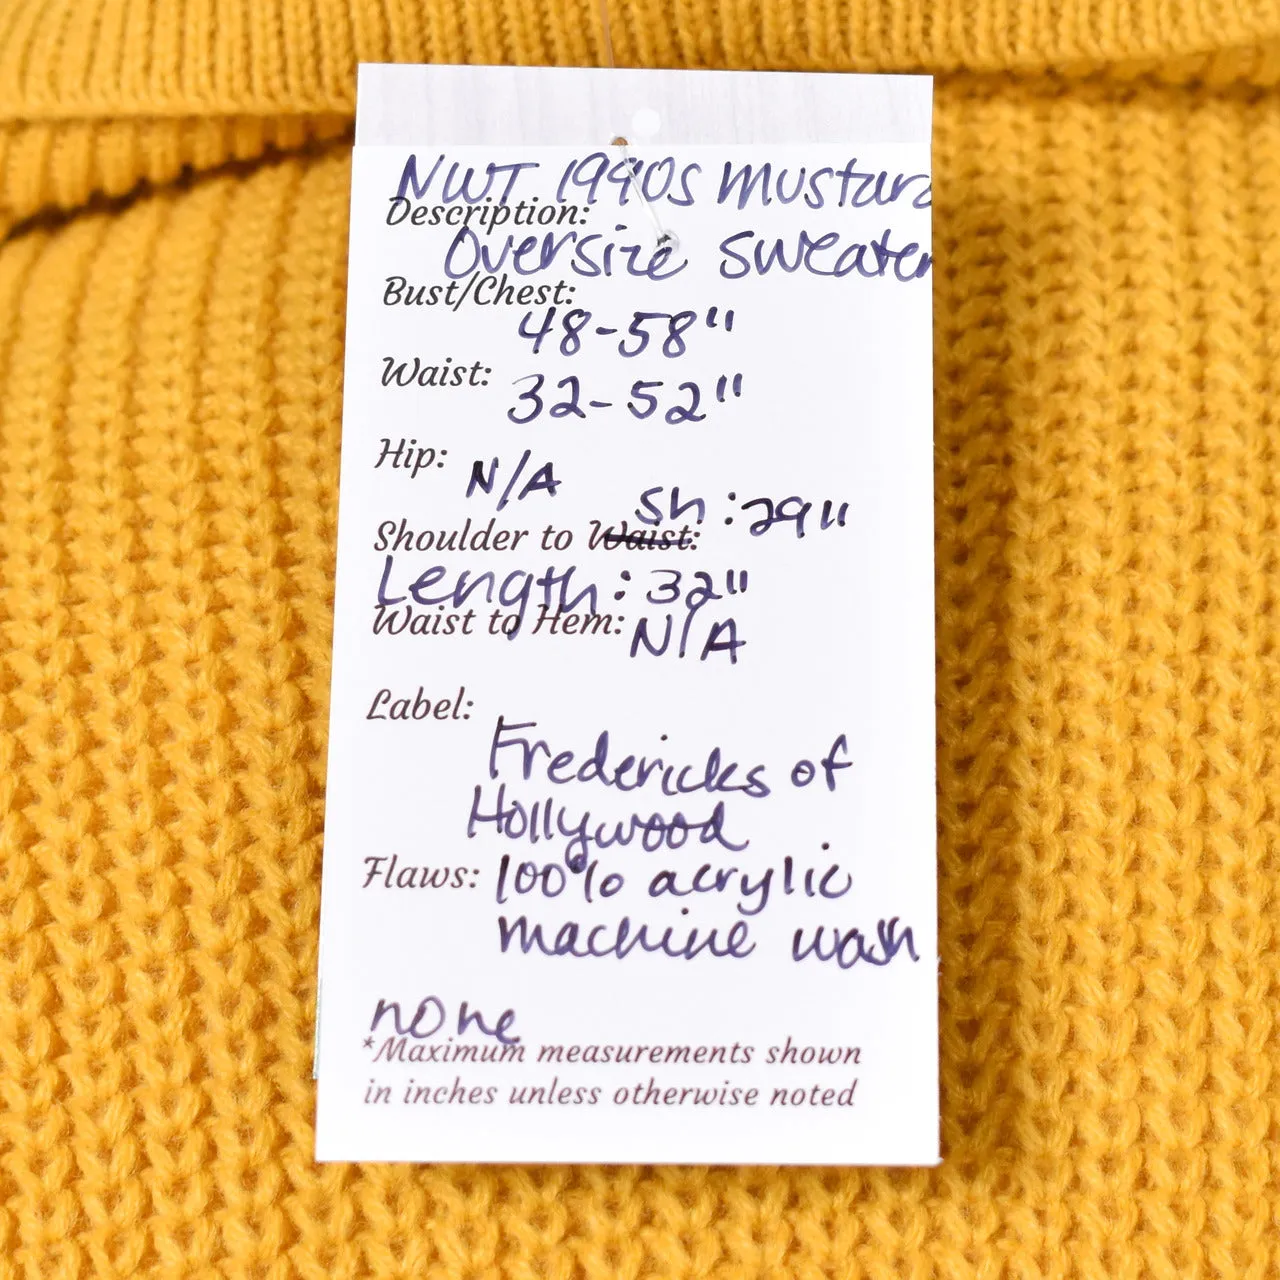 NWT 1990s Mustard
Description:
Oversize Sweater
Bust/Chest:
48-58"
Waist:
32-52"
Hip: N/A
Sh: 29"
Shoulder to Waist:
Length: 32"
Waist to Hem: N/A
Label:
Fredericks of
Hollywood
Flaws: 100% acrylic
machine wash
none
*Maximum measurements shown
in inches unless otherwise noted